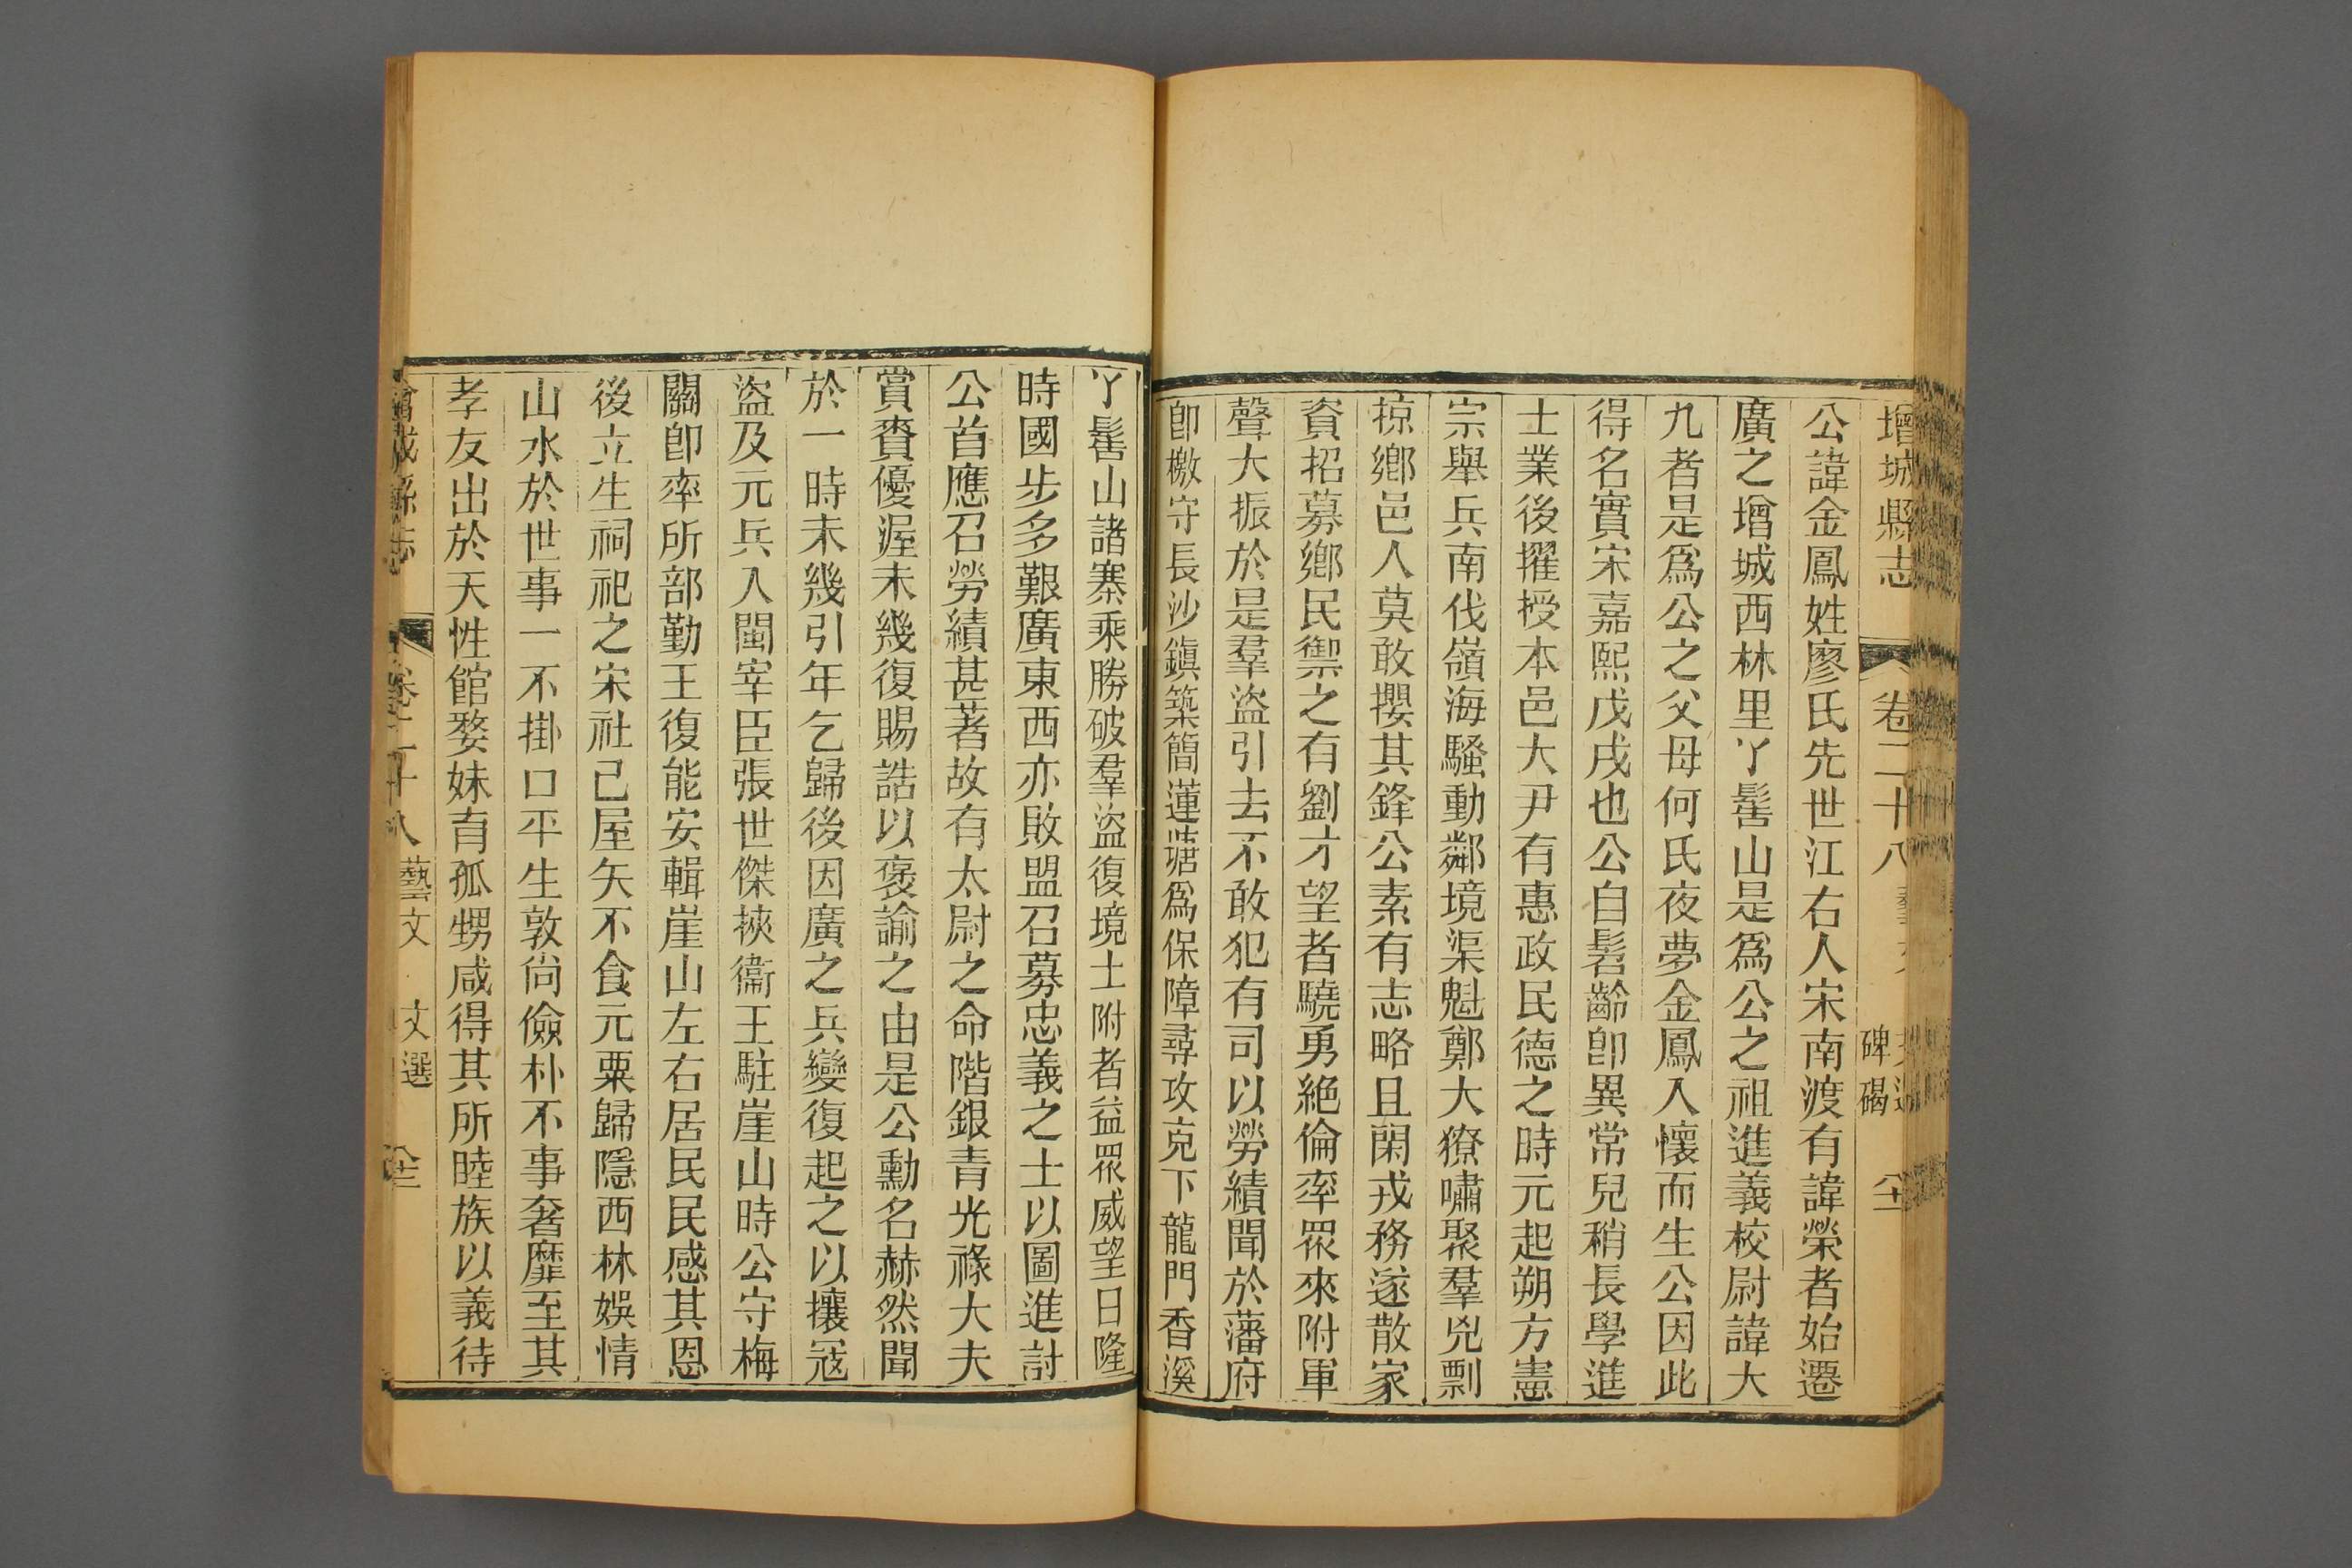 增城縣志 卷二十八 碑碣
公諱金鳳姓廖氏先世江右人宋南渡有諱榮者始遷
廣之增城西林里丫髻山是爲公之祖進義校尉諱大
九者是爲公之父母何氏夜夢金鳳入懷而生公因此
得名實宋嘉熙戊戌也公自髫齡卽異常兒稍長學進
士業後擢授本邑大尹有惠政民德之時元起朔方憲
宗舉兵南伐嶺海騷動鄰境渠魁鄭大獠嘯聚羣兇剽
掠鄉邑人莫敢攖其鋒公素有志略且閑戎務遂散家
資招募鄉民禦之有劉才望者驍勇絶倫率眾來附軍
聲大振於是羣盜引去不敢犯有司以勞績聞於藩府
卽檄守長沙鎮築簡蓮塘爲保障尋攻克下龍門香溪
丫髻山諸寨乘勝破羣盜復境土附者益眾威望日隆
時國步多艱廣東西亦敗盟召募忠義之士以圖進討
公首應召勞績甚著故有太尉之命階銀青光祿大夫
賞賚優渥未幾復賜誥以褒諭之由是公勳名赫然聞
於一時未幾引年乞歸後因廣之兵變復起之以攘寇
盜及元兵入閩宰臣張世傑挾衞王駐崖山時公守梅
關卽率所部勤王復能安輯崖山左右居民民感其恩
後立生祠祀之宋社已屋矢不食元粟歸隱西林娛情
山水於世事一不掛口平生敦尚儉朴不事奢靡至其
孝友出於天性館婺妹育孤甥咸得其所睦族以義待
增城縣志 卷二十八 藝文 文選